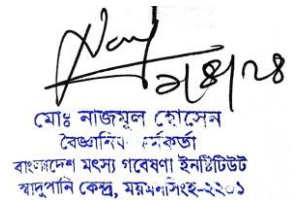 ২/৪/২৪
মোঃ নাজমুল হোসেন
বৈজ্ঞানিক কর্মকর্তা
বাংলাদেশ মৎস্য গবেষণা ইনস্টিটিউট
স্বাদুপানি কেন্দ্র, ময়মনসিংহ-২২০১